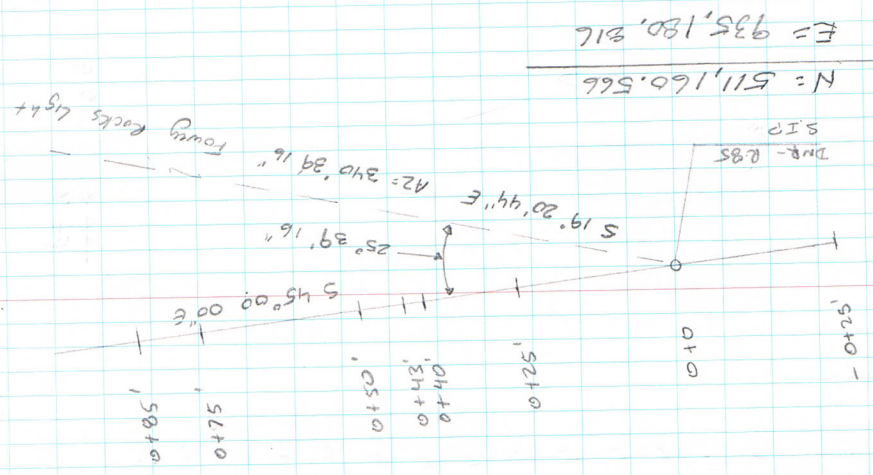 - 0+25'
0+0
0+25'
0+40'
0+43'
0+50'
0+75'
0+85'
S 45° 00' 00" E
25° 39' 16"
S 19° 20' 44" E
AZ = 340° 39' 16"
Fowey Rocks Light
DNR - R85
S.I.P
N = 511,160.566
E = 935,180,816